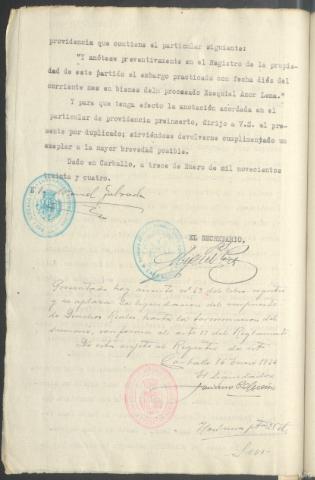 providencia que contiene el particular siguiente:
"Y anótese preventivamente en el Registro de la propie-
dad de este partido el embargo practicado con fecha diés del
corriente mes en bienes deln procesado Exequiel Anor Lema."
Y para que tenga efecto la anotación acordada en el
particular de providencia preinserto, dirijo a V.S. el pre-
sente por duplicado; sirviéndose devolverme cumplimentado un
exeplar a la mayor brevedad posible.
Dado en Carballo, a trece de Enero de mil novecientos
treinta y cuatro.
EL SECRETARIO,
Presentado hoy asiento nº 63 del libro registro
y se aplaza la liquidación del impuesto
de Derechos Reales hasta la terminación del
sumario, conforme al artº del Reglamento
No está sujeto al Registro de
Carballo 16 Enero 1934
El Liquidador